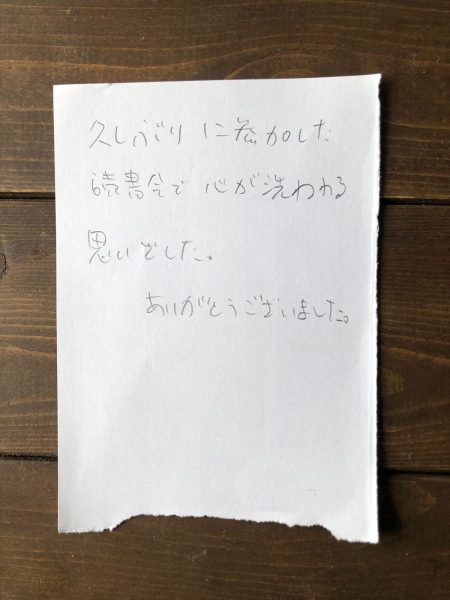 久しぶりに参加した
読書会で心が洗われる
思いでした。
ありがとうございました。